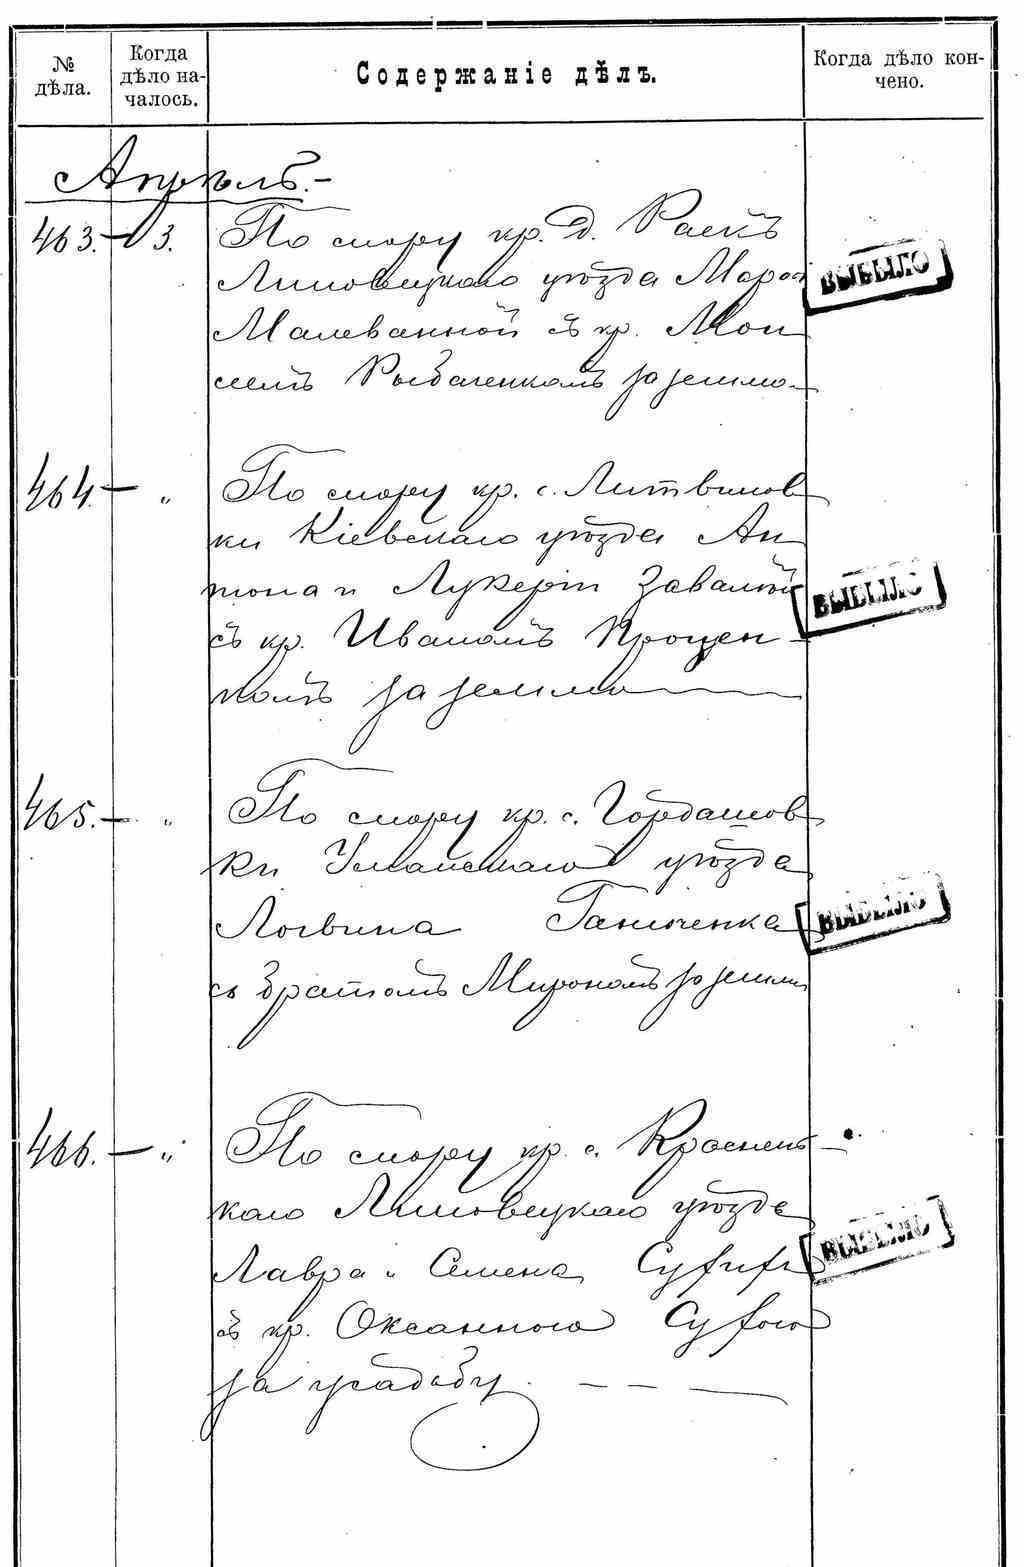 № дѣла.
Когда дѣло началось.
Содержаніе дѣлъ.
Когда дѣло кончено.
Апрѣль.-
463. - 3. По спору кр. д. Раекъ
Липовецкаго уѣзда Мароы
Малеванной съ кр. Мои
сеемъ Рыбаченкомъ за землю
ВЫБЫЛО
464. - „ По спору кр. с. Литвинов
ки Кіевскаго уѣзда Ан
тона и Лукеріи Завалий
съ кр. Иваномъ Процен-
комъ за землю
ВЫБЫЛО
465. - „ По спору кр. с. Гордашов
ки Уманскаго уѣзда
Логвина Ганюченка
съ братомъ Мирономъ за землю
ВЫБЫЛО
466. - „ По спору кр. с. Краснень-
каго Липовецкаго уѣзда
Лавра и Семена
съ кр. Оксанною
за усадьбу. - - -
ВЫБЫЛО